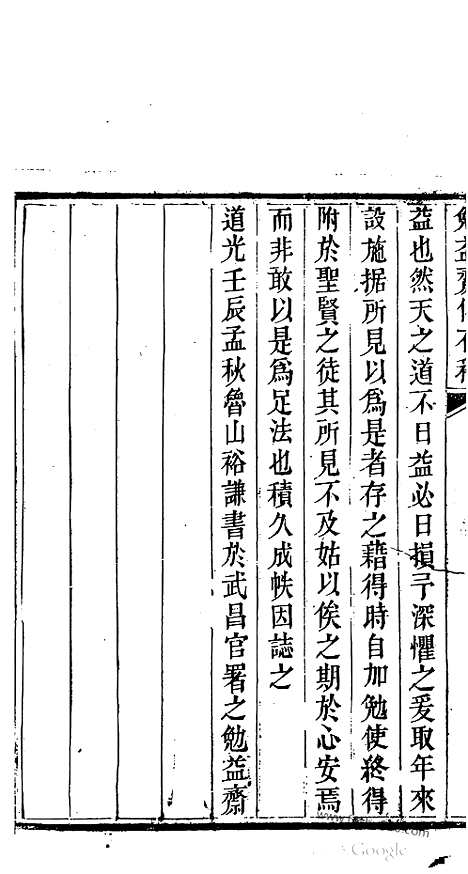 勉益齋偶存稿
益也然天之道不日益必日損予深懼之爰取年來
設施据所見以爲是者存之藉得時自加勉使終得
附於聖賢之徒其所見不及姑以俟之期於心安焉
而非敢以是爲足法也積久成帙因誌之
道光壬辰孟秋魯山裕謙書於武昌官署之勉益齋
Google